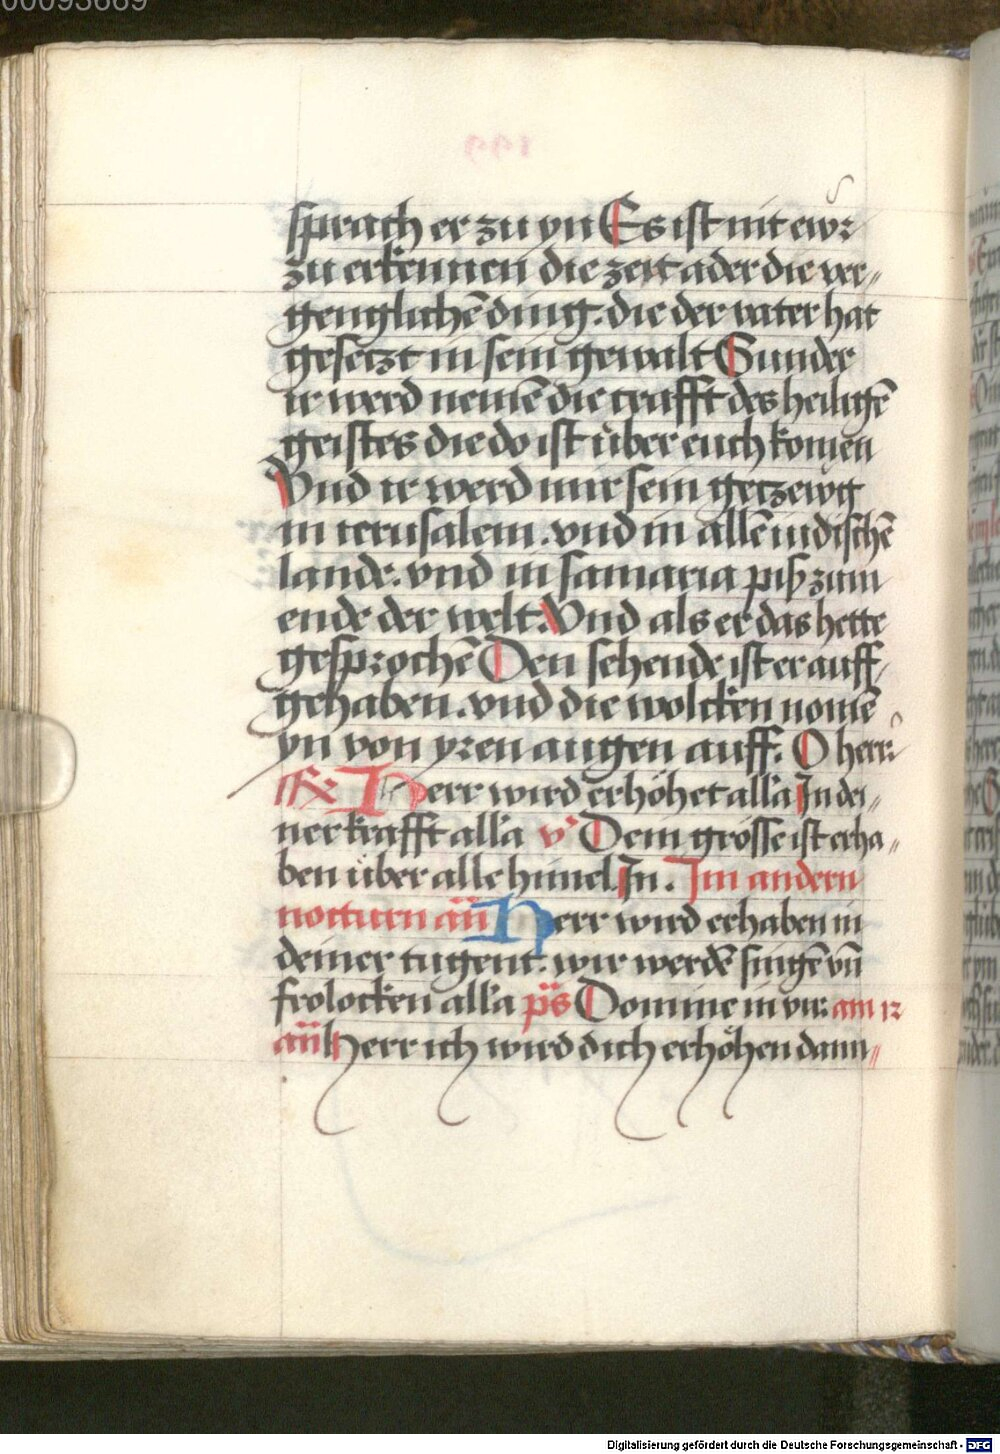 00093669
199
sprach er zu yn Es ist nit ewr
zu erkennen die zeit ader die ver„
genglichē ding. die der vater hat
gesetzt in sein gewalt Sunder
ir werd nemē die crafft des heiligē
geistes die do ist über euch komen
Vnd ir werd mir sein getzewg
in ierusalem. vnd in allē iudischē
lande. vnd in samaria piß zum
ende der welt. Vnd als er das hette
gesprochē Den sehende ist er auff„
gehaben. vnd die wolcken nomē
yn von yren augen auff. O herr
Herr wird erhöhet all'a In dei„
ner krafft all'a v' Dein grösse ist erha„
ben über alle himel. In. Im andern
notturn an̄ Herr wird erhaben in
deiner tugent. wir werdē singē vn̄
frolocken all'a p̄s Domine in vir. am 12
an̄ Herr ich wird dich erhöhen dann„
Digitalisierung gefördert durch die Deutsche Forschungsgemeinschaft - DFG